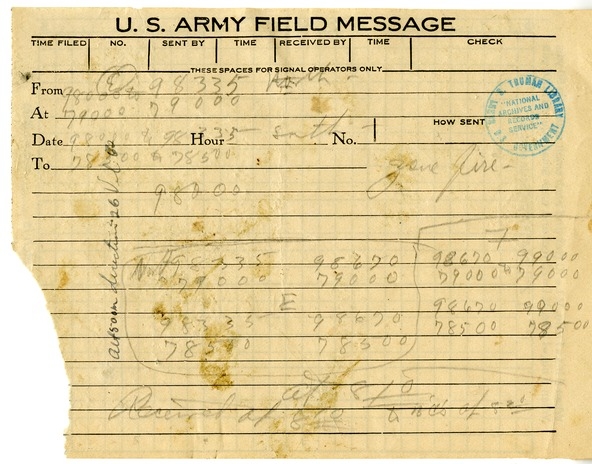 U. S. ARMY FIELD MESSAGE
TIME FILED NO. SENT BY TIME RECEIVED BY TIME CHECK
THESE SPACES FOR SIGNAL OPERATORS ONLY
From 98000 98335 North -
At 79000 79000
Date 98000 to 98335 Hour south - No. HOW SENT
To 78500 to 78500
zone fire -
98000
HARRY S. TRUMAN LIBRARY
"NATIONAL ARCHIVES AND RECORDS SERVICE"
U.S. GOVERNMENT
98335 98670 98670 99000
79000 79000 79000 79000
E
98335 98670 98670 99000
78500 78500 78500 78500
at 810
Received at 810